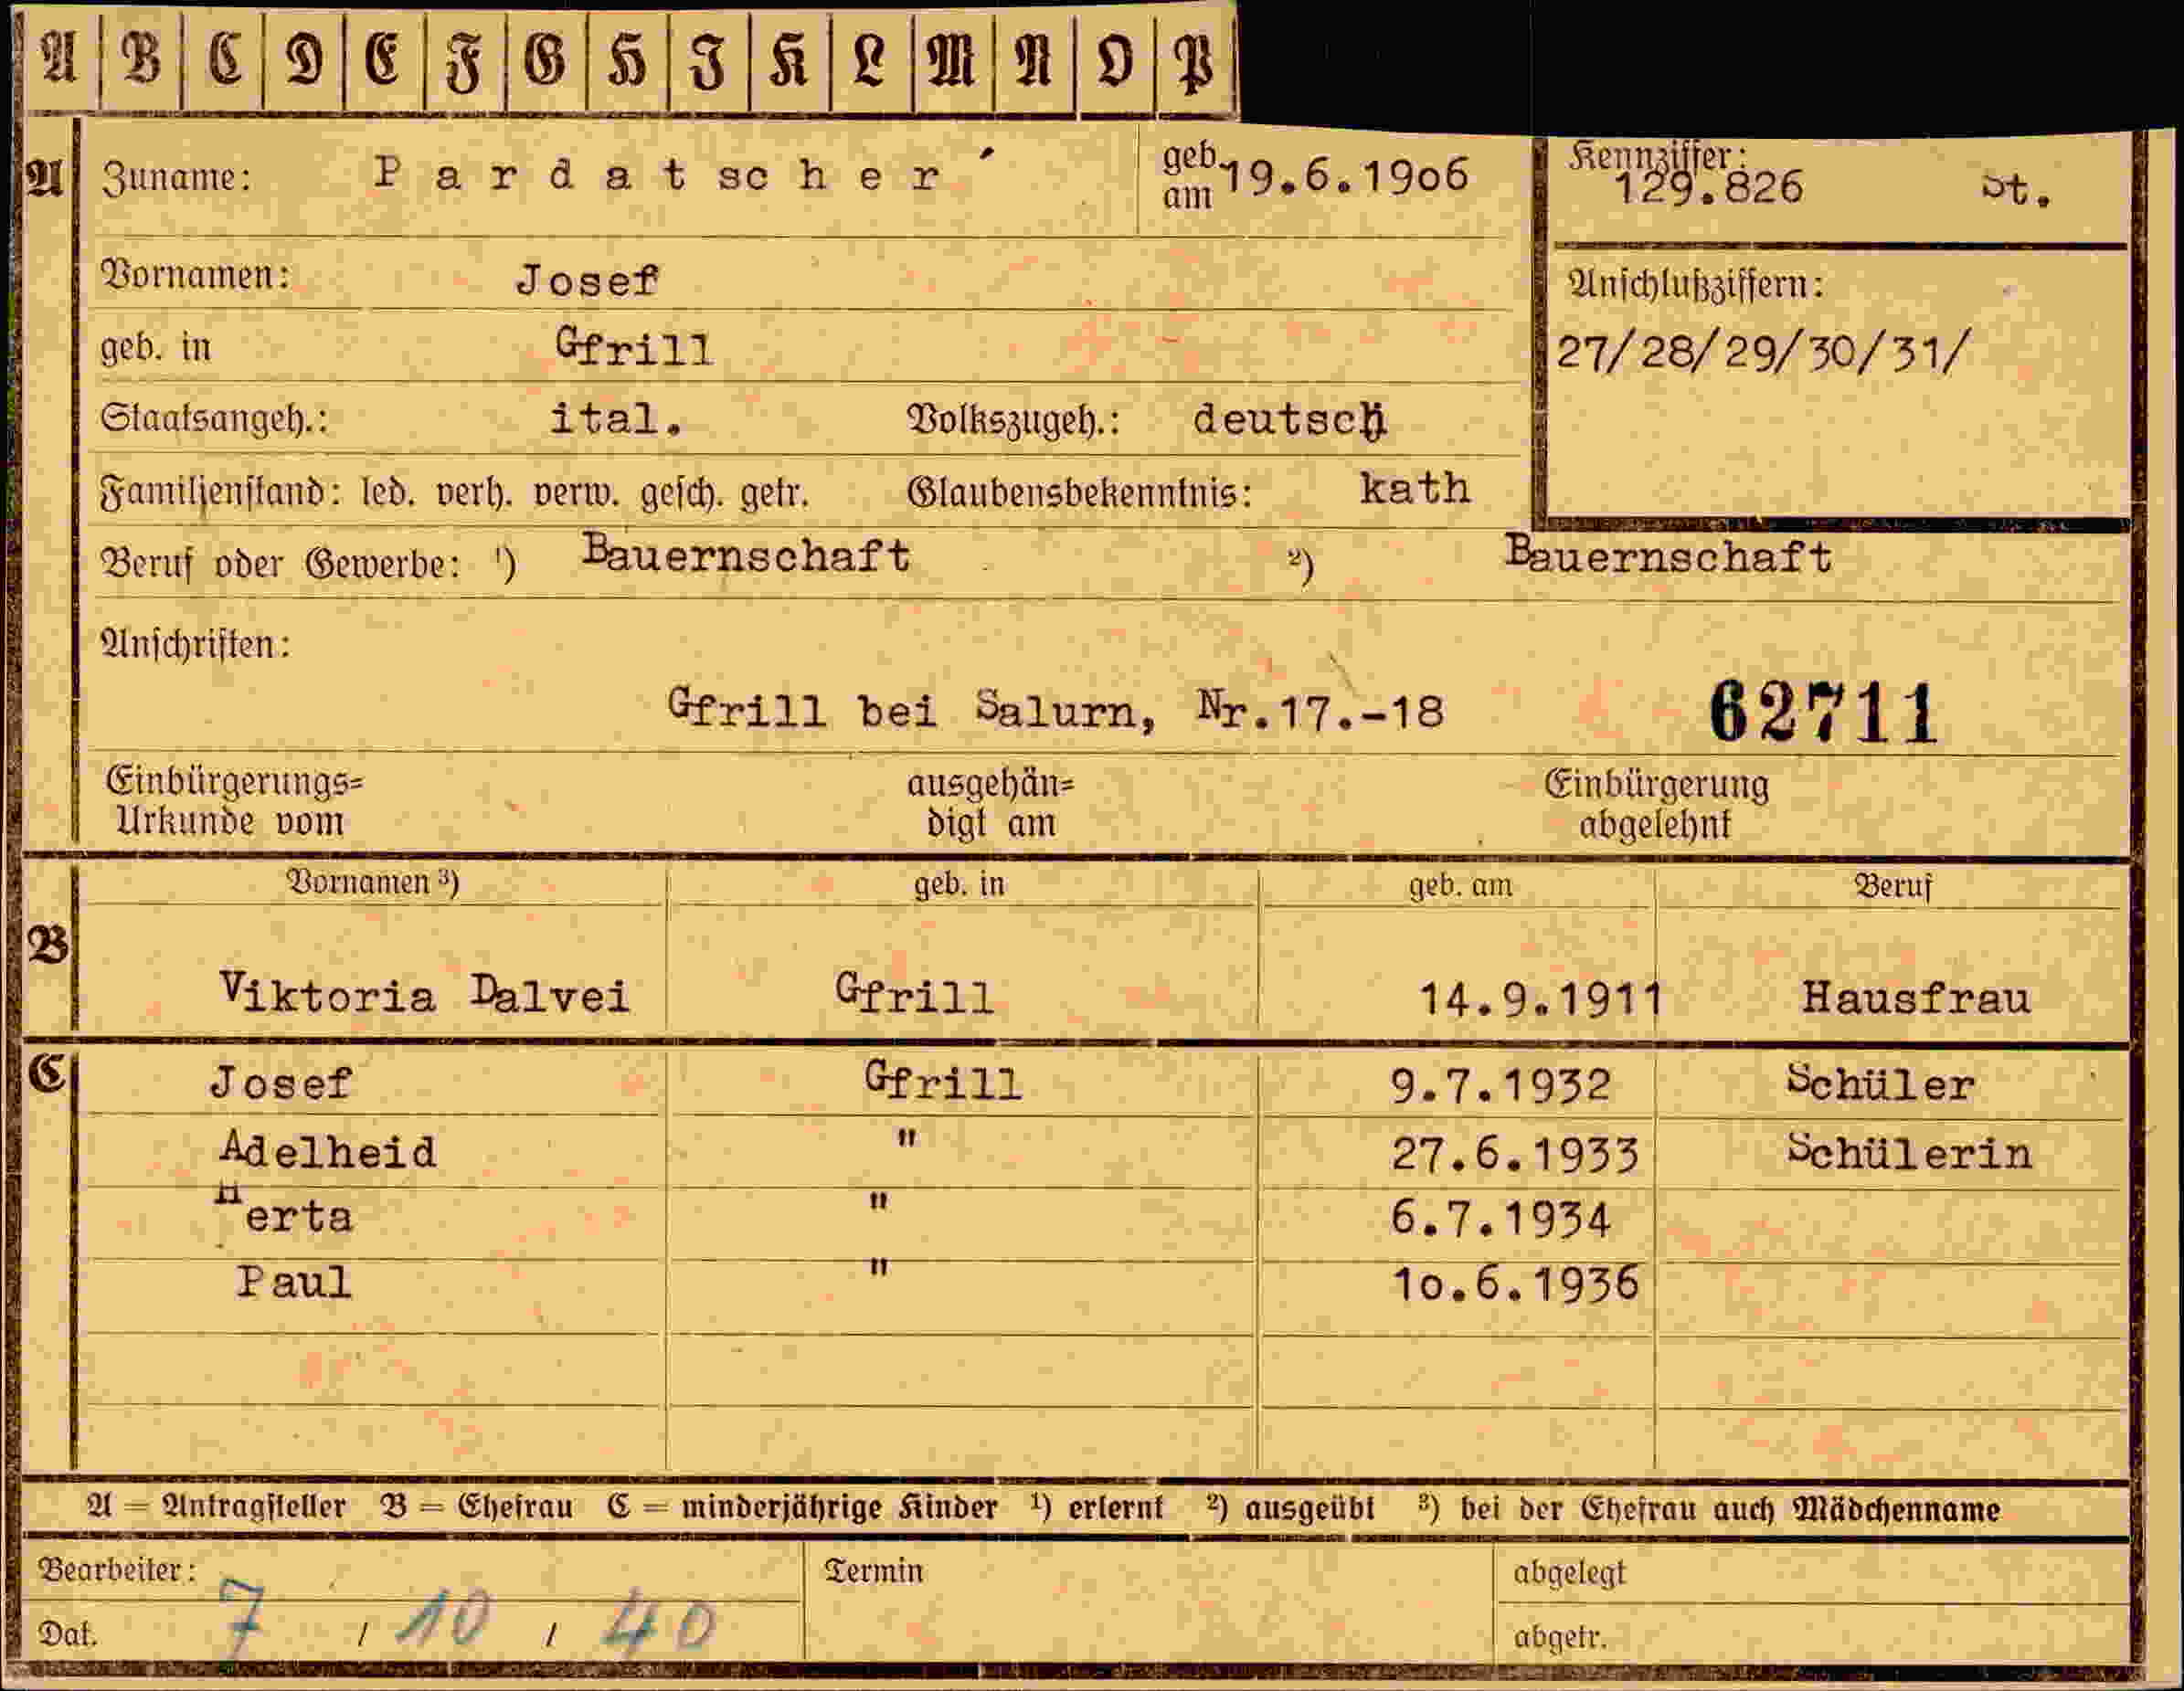 A B C D E F G H I K L M N O P
A Zuname: Pardatscher geb. am 19.6.19o6 Kennziffer: 129.826 St.
Vornamen: Josef Anschlußziffern:
geb. in Gfrill 27/28/29/30/31/
Staatsangeh.: ital. Volkszugeh.: deutsch
Familienstand: led. verh. verw. gesch. getr. Glaubensbekenntnis: kath
Beruf oder Gewerbe: ¹) Bauernschaft ²) Bauernschaft
Anschriften:
Gfrill bei Salurn, Nr.17.-18 62711
Einbürgerungs= ausgehän= Einbürgerung
Urkunde vom digt am abgelehnt
Vornamen ³) geb. in geb. am Beruf
B
Viktoria Dalvei Gfrill 14.9.1911 Hausfrau
C Josef Gfrill 9.7.1932 Schüler
Adelheid " 27.6.1933 Schülerin
Herta " 6.7.1934
Paul " 1o.6.1936
A = Antragsteller B = Ehefrau C = minderjährige Kinder ¹) erlernt ²) ausgeübt ³) bei der Ehefrau auch Mädchenname
Bearbeiter: Termin abgelegt
Dat. 7 / 10 / 40 abgetr.